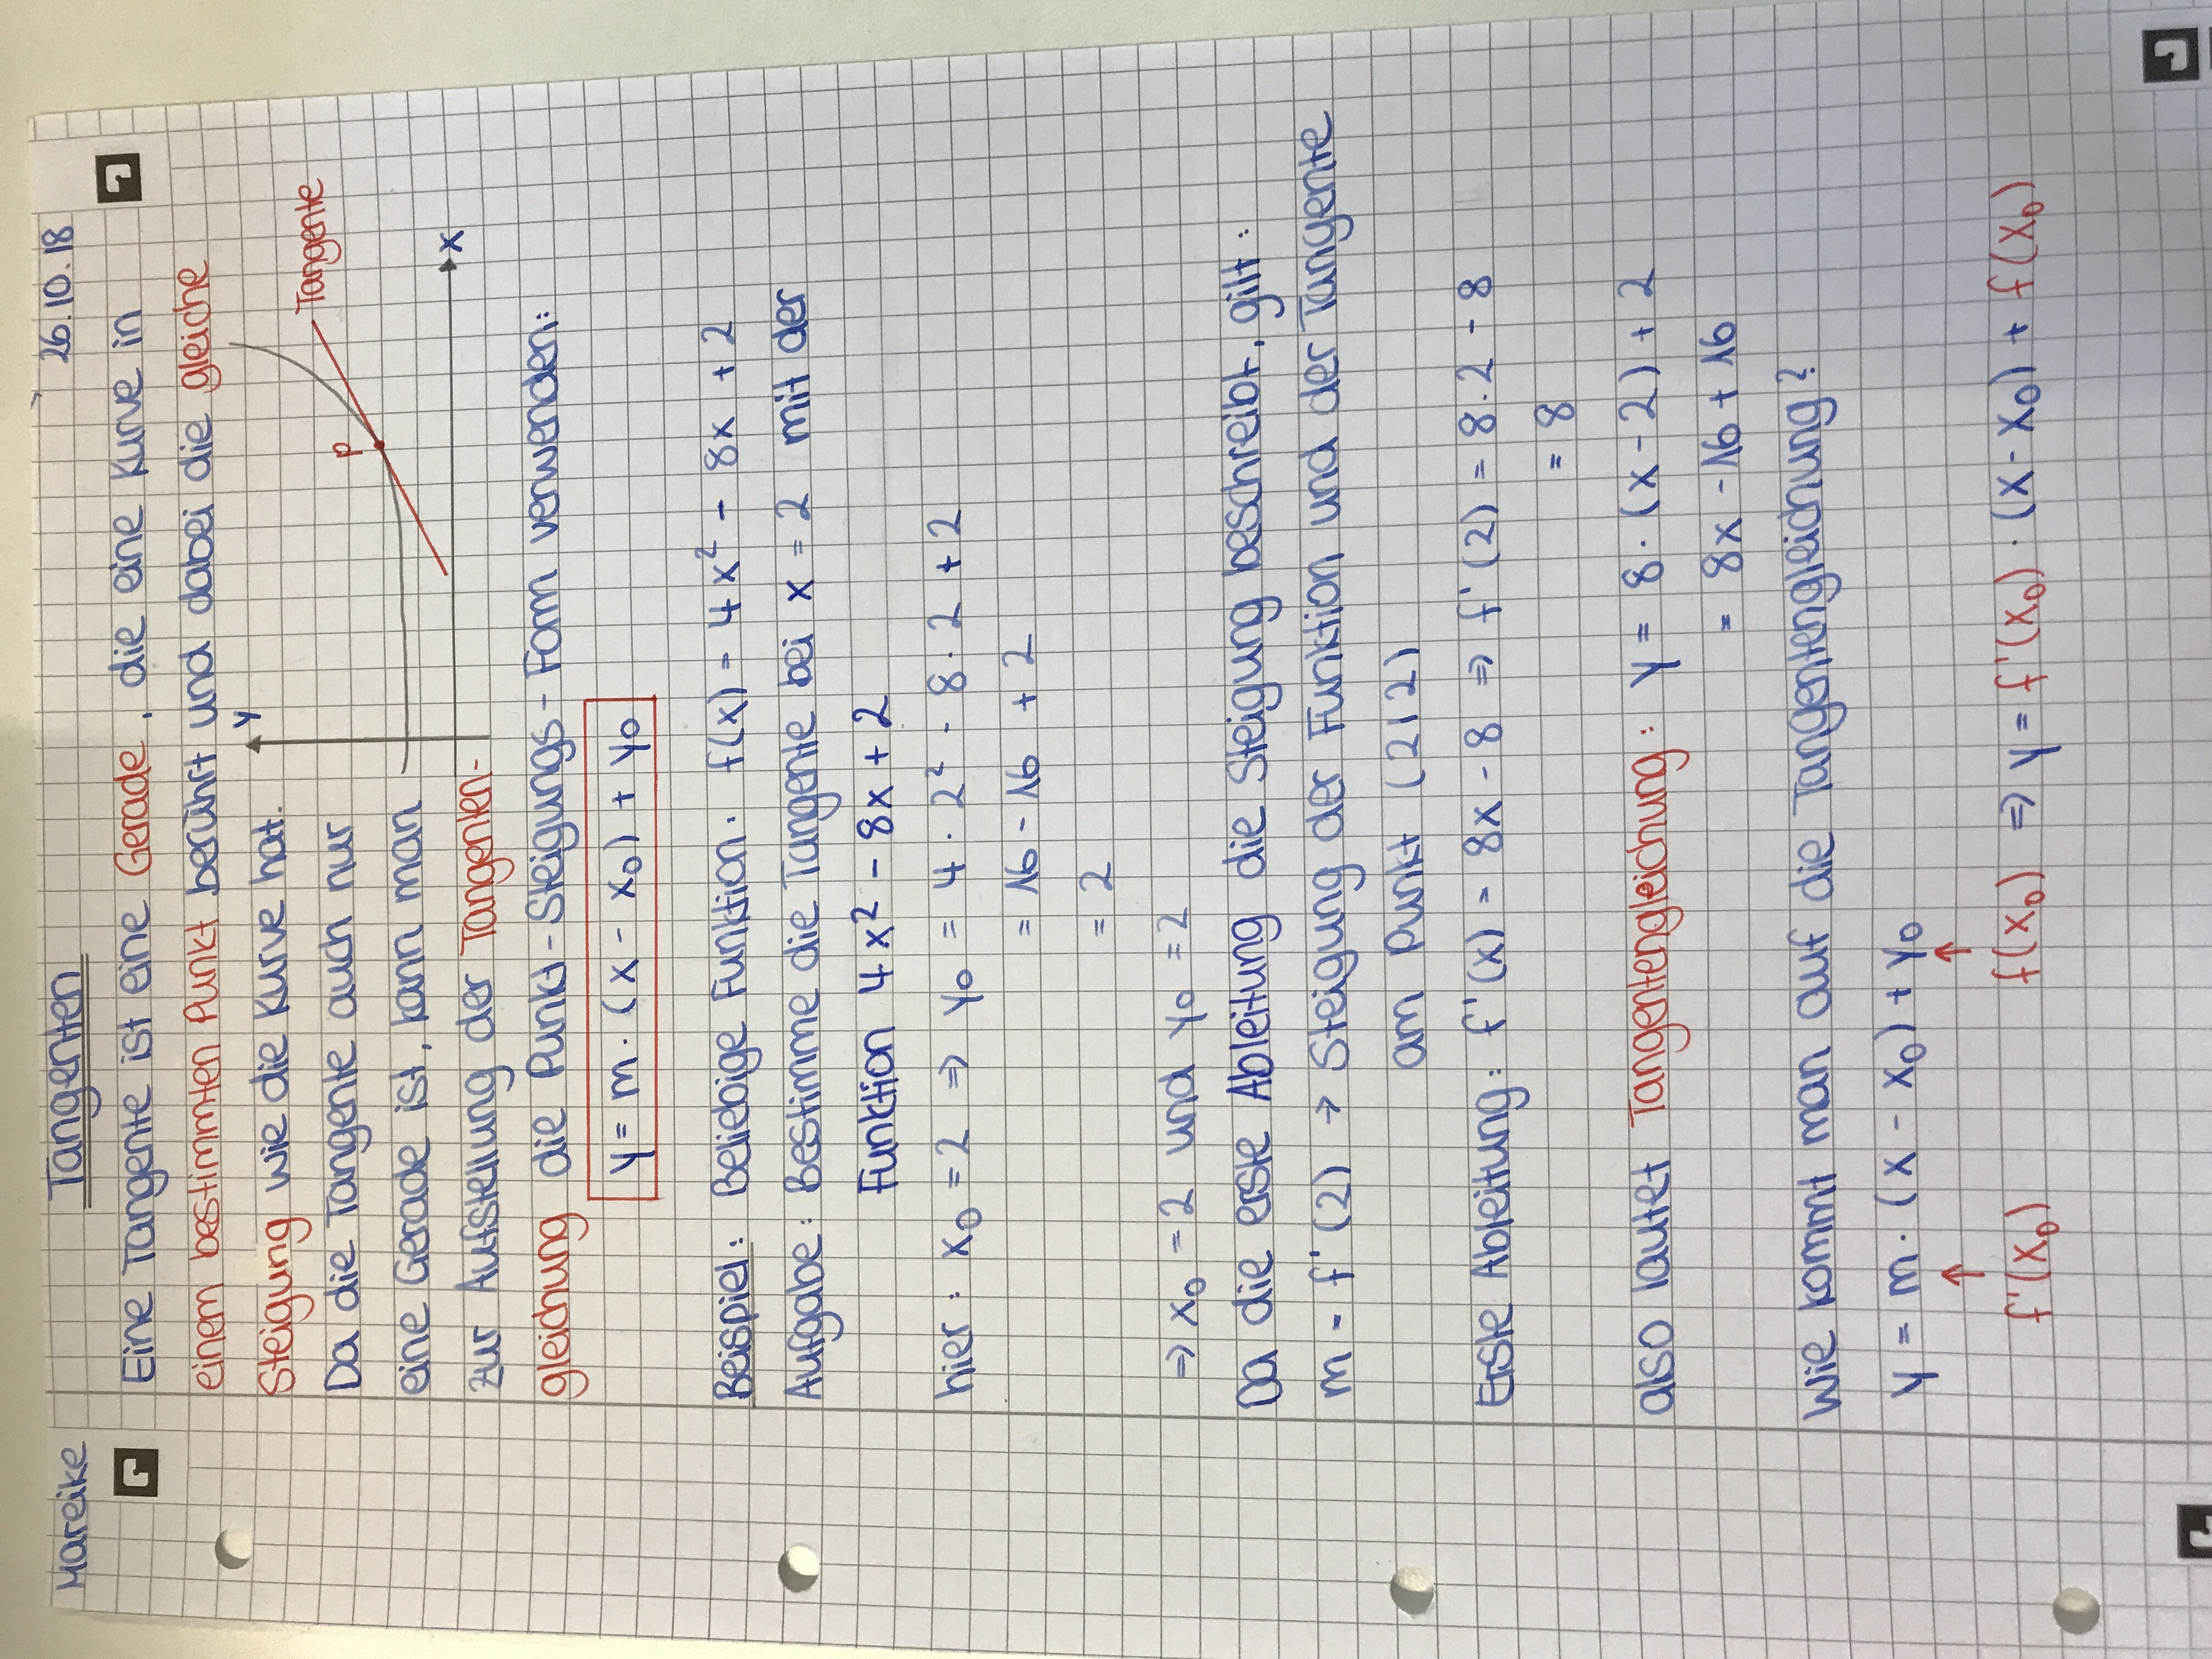 Mareike
Tangenten
26.10.18
Eine Tangente ist eine Gerade, die eine Kurve in
einem bestimmten Punkt berührt und dabei die gleiche
Steigung wie die Kurve hat.
Da die Tangente auch nur
eine Gerade ist, kann man
zur Aufstellung der Tangenten-
gleichung die Punkt-Steigungs-Form verwenden:
y
P
Tangente
x
y = m · (x - x₀) + y₀
Beispiel: Beliebige Funktion: f(x) = 4x² - 8x + 2
Aufgabe: Bestimme die Tangente bei x = 2 mit der
Funktion 4x² - 8x + 2
hier: x₀ = 2 ⇒ y₀ = 4 · 2² - 8 · 2 + 2
= 16 - 16 + 2
= 2
⇒ x₀ = 2 und y₀ = 2
Da die erste Ableitung die Steigung beschreibt, gilt:
m = f'(2) → Steigung der Funktion und der Tangente
am Punkt (2|2)
Erste Ableitung: f'(x) = 8x - 8 ⇒ f'(2) = 8 · 2 - 8
= 8
also lautet Tangentengleichung: y = 8 · (x - 2) + 2
= 8x - 16 + 16
Wie kommt man auf die Tangentengleichung?
y = m · (x - x₀) + y₀
↑ ↑
f'(x₀) f(x₀) ⇒ y = f'(x₀) · (x - x₀) + f(x₀)